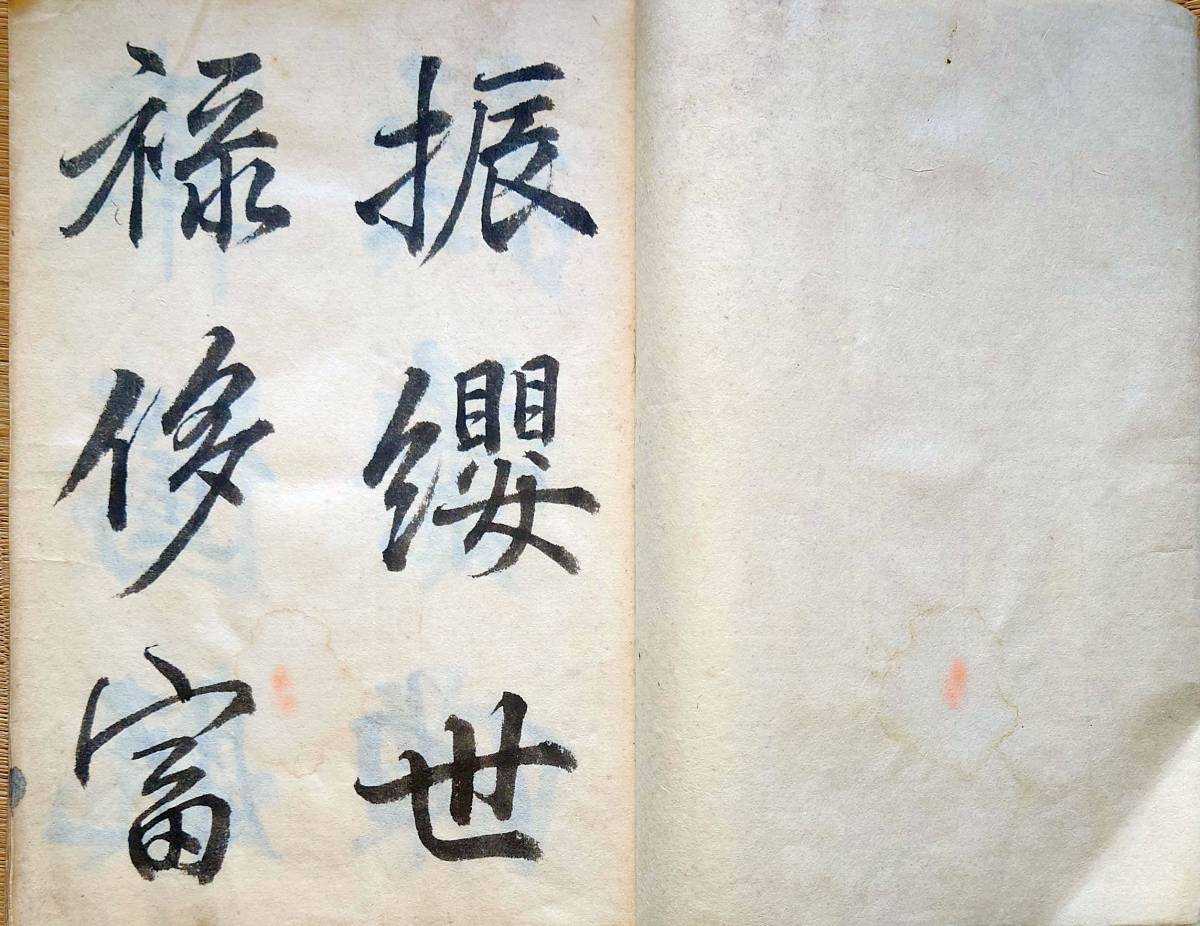 振纓世
禄侈富